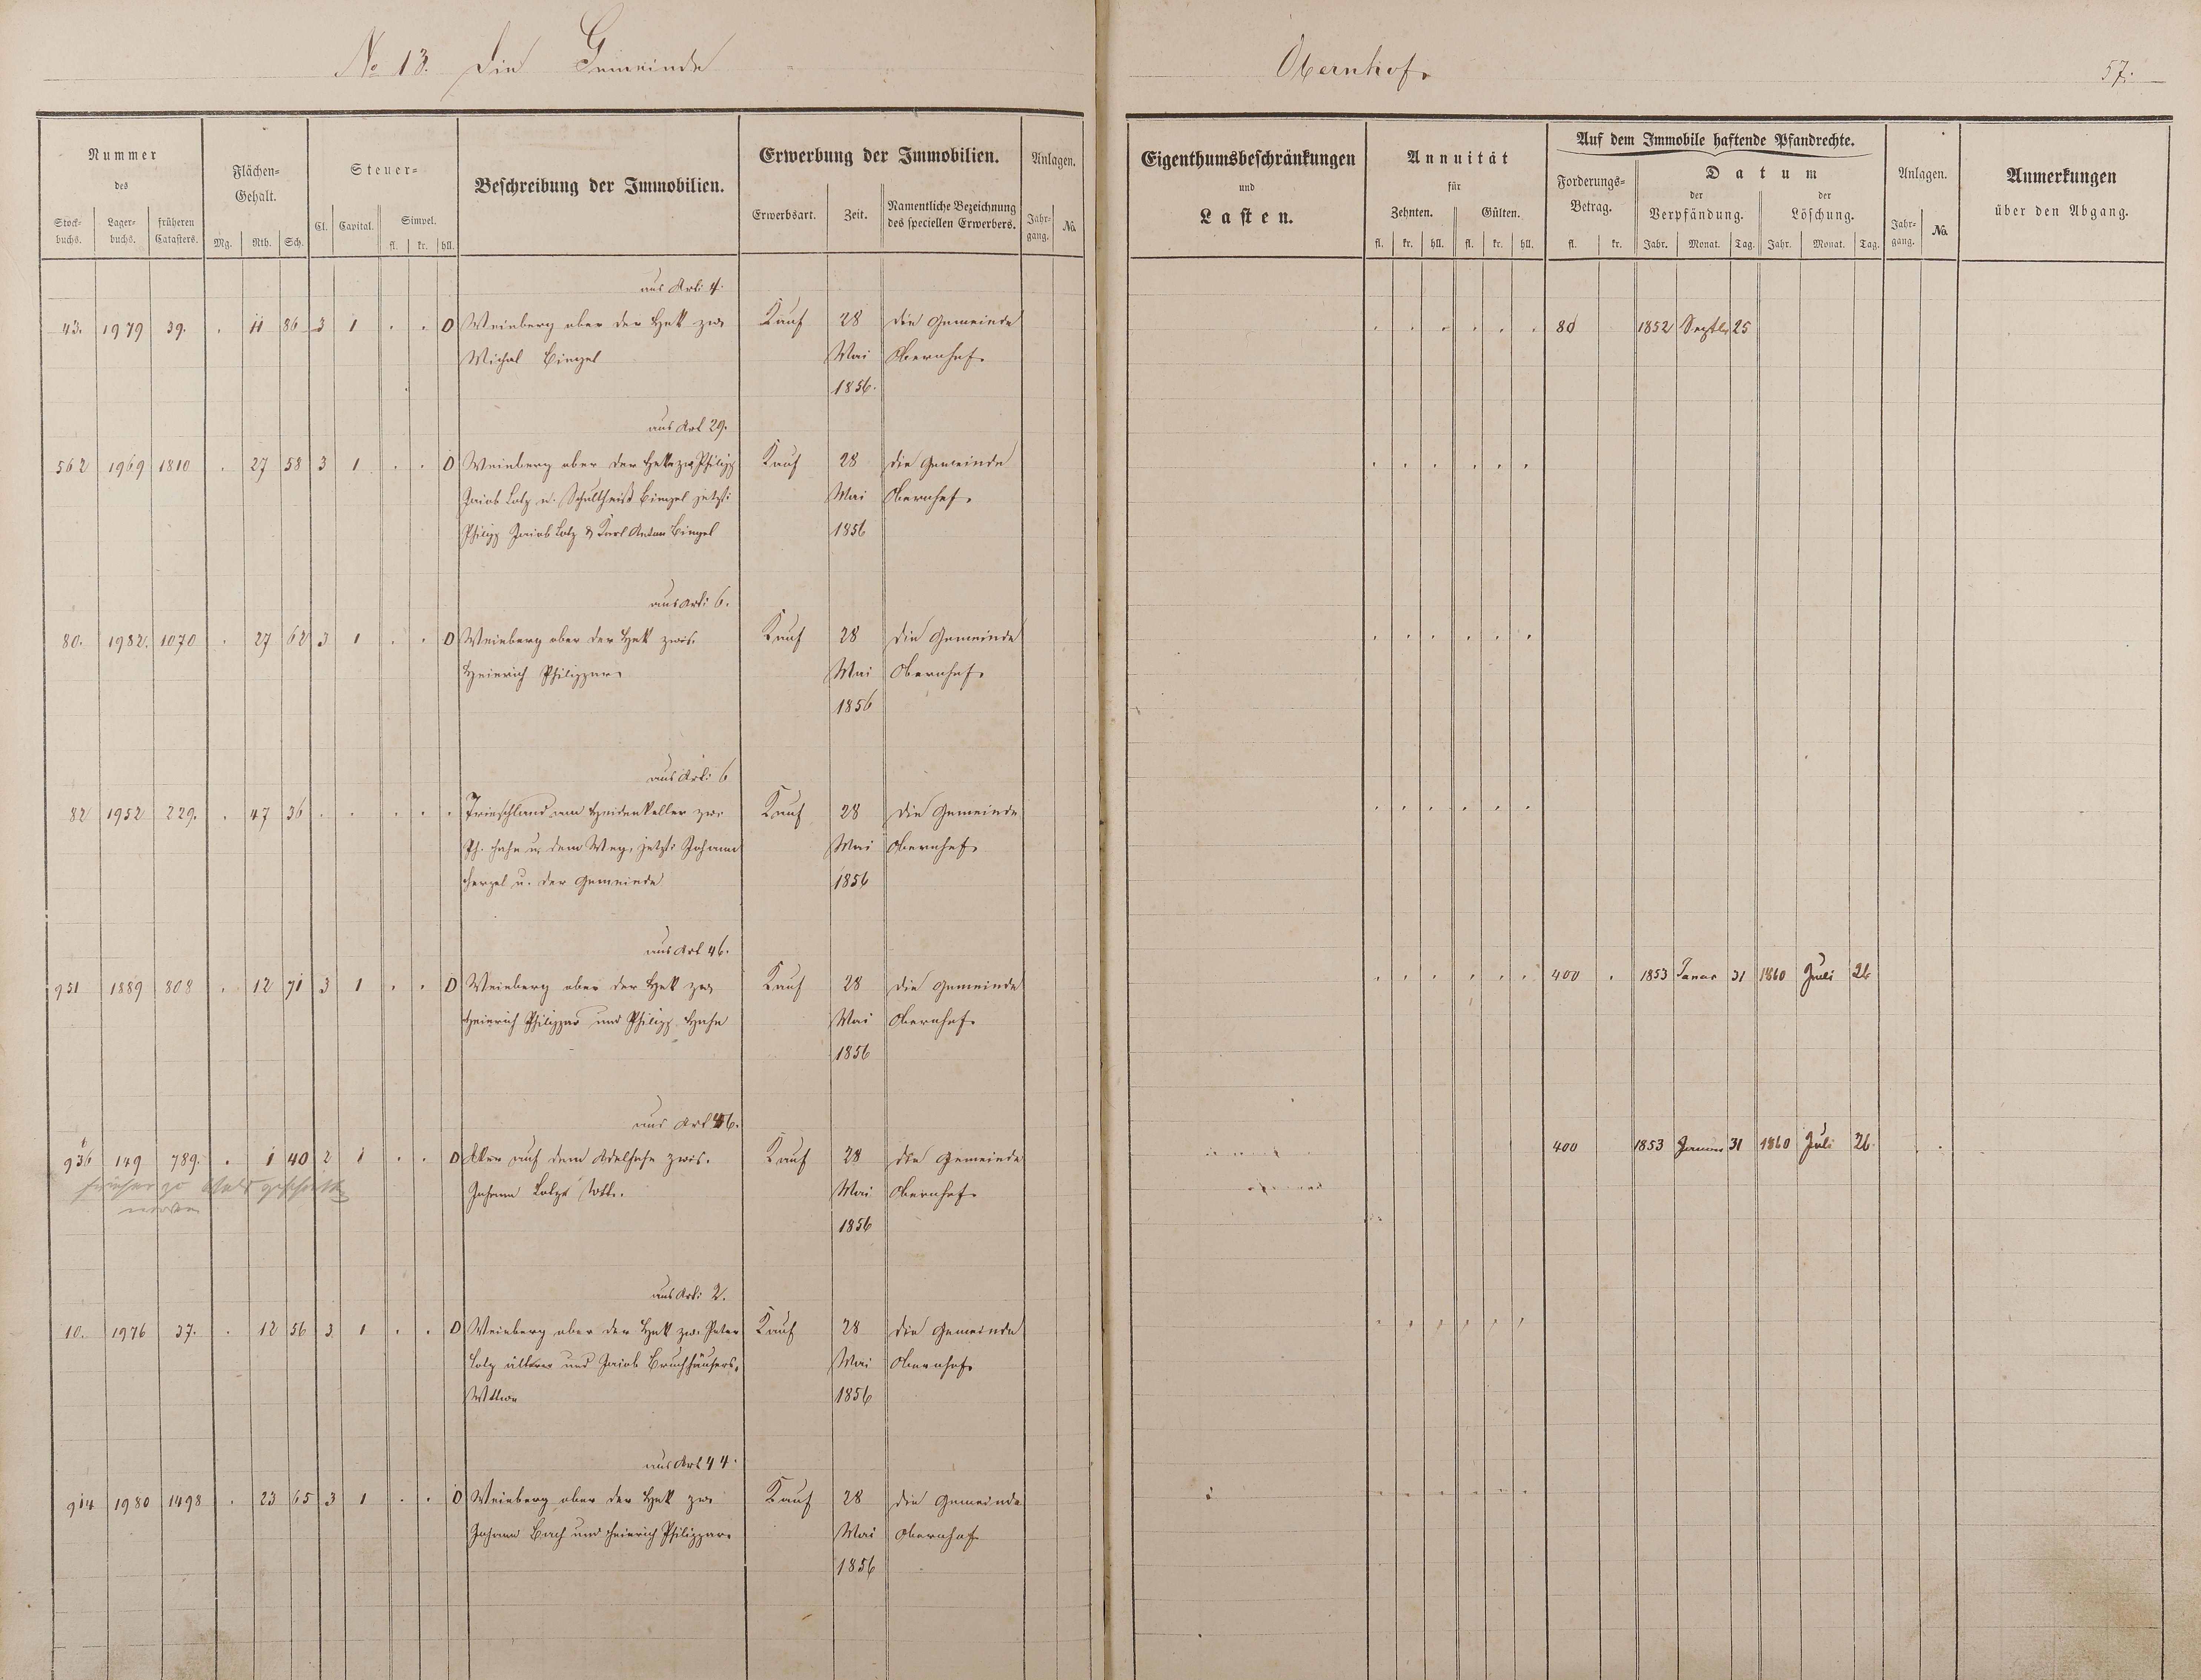 No 13. Die Gemeinde
Obernhof.
57.
Nummer
des
Stock-
buchs.
Lager-
buchs.
früheren
Catasters.
Flächen-
Gehalt.
Mg.
Rth.
Sch.
Steuer-
Cl.
Capital.
Simpel.
fl.
kr.
hll.
Beschreibung der Immobilien.
Erwerbung der Immobilien.
Erwerbsart.
Zeit.
Namentliche Bezeichnung
des speciellen Erwerbers.
Anlagen.
Jahr-
gang.
No.
Eigenthumsbeschränkungen
und
Lasten.
Annuität
für
Zehnten.
Gülten.
fl. kr. hll. fl. kr. hll.
Auf dem Immobile haftende Pfandrechte.
Forderungs-
Betrag.
fl. kr.
Datum
der
Verpfändung.
der
Löschung.
Jahr. Monat. Tag. Jahr. Monat. Tag.
Anlagen.
Jahr-
gang.
No.
Anmerkungen
über den Abgang.
aus Art: 4.
43. 1979 39. . 11 86 3 1 . . 0 Weinberg ober der Heck zw. Kauf 28 die Gemeinde 80 1852 Septbr 25
Michel Bingel Mai Obernhof.
1856.
aus Art 29.
562 1969 1810 . 27 58 3 1 . . 0 Weinberg ober der Hecke zw. Philipp Kauf 28 die Gemeinde
Jacob Lotz u. Schultheiß Bingel jetzt: Mai Obernhof.
Philipp Jacob Lotz & Karl Anton Bingel 1856
aus Art: 6.
80. 1982. 1070 . 27 62 3 1 . . 0 Weinberg ober der Heck zwis. Kauf 28 die Gemeinde
Heinrich Philippar. Mai Obernhof.
1856
aus Art: 6
82 1952 229. . 47 36 . . . . . Trieschland am Heidenkeller zw. Kauf 28 die Gemeinde
Ph. Hahn u. dem Weg, jetzt: Johann Mai Obernhof.
u. der Gemeinde 1856
aus Art 46.
951 1889 808 . 12 71 3 1 . . 0 Weinberg ober der Heck zw. Kauf 28 die Gemeinde 400 . 1853 Januar 31 1860 Juli 26
Heinrich Philippar und Philipp Hahn Mai Obernhof.
1856
aus Art 46.
936 149 789. . 1 40 2 1 . . 0 Acker auf dem zwis. Kauf 28 die Gemeinde 400 1853 Januar 31 1860 Juli 26
früher zu
worden
Johann Lotz Wtb. Mai Obernhof.
1856
aus Art: 2.
10. 1976 37. . 12 56 3 1 . . 0 Weinberg ober der Heck zw. Peter Kauf 28 die Gemeinde
Lotz älterer und Jacob Bruchhäusers. Mai Obernhof.
Wittwe 1856
aus Art 44.
914 1980 1498 . 23 65 3 1 . . 0 Weinberg ober der Heck zw. Kauf 28 die Gemeinde
Johann Bach und Heinrich Philippar. Mai Obernhof.
1856